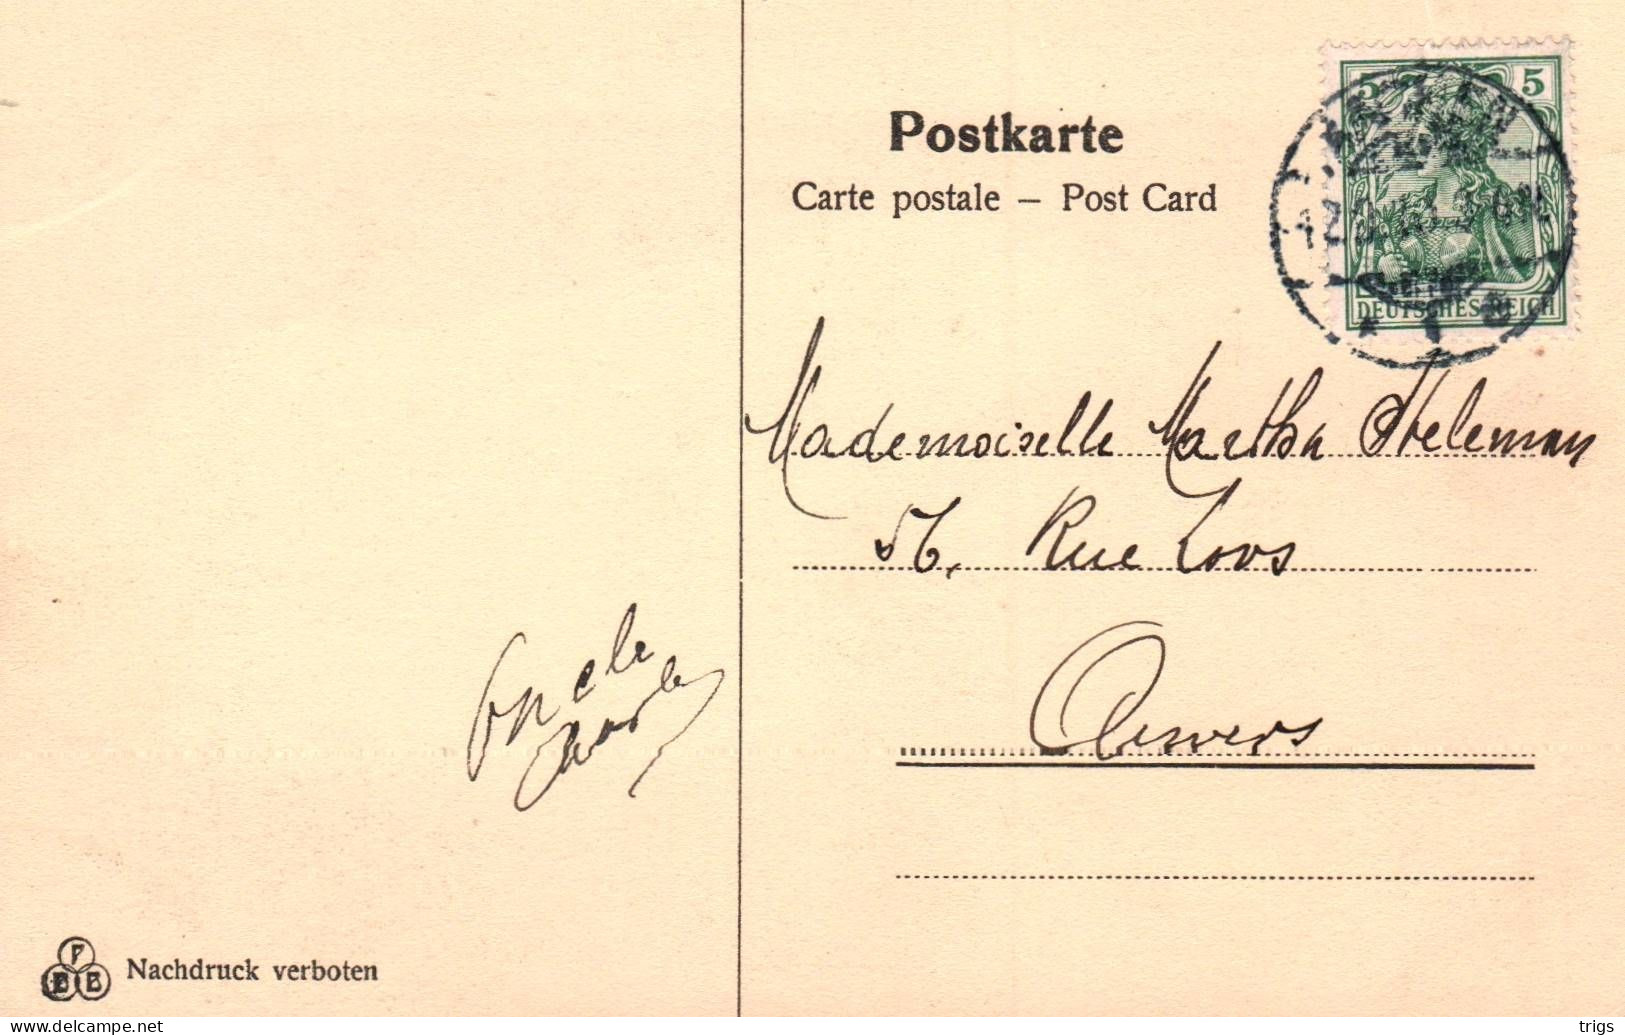 Postkarte
Carte postale – Post Card
5 5
DEUTSCHES REICH
Mademoiselle Martha
56, Rue Loos
Anvers
Oncle
Charles
Nachdruck verboten
delcampe.net
trigs